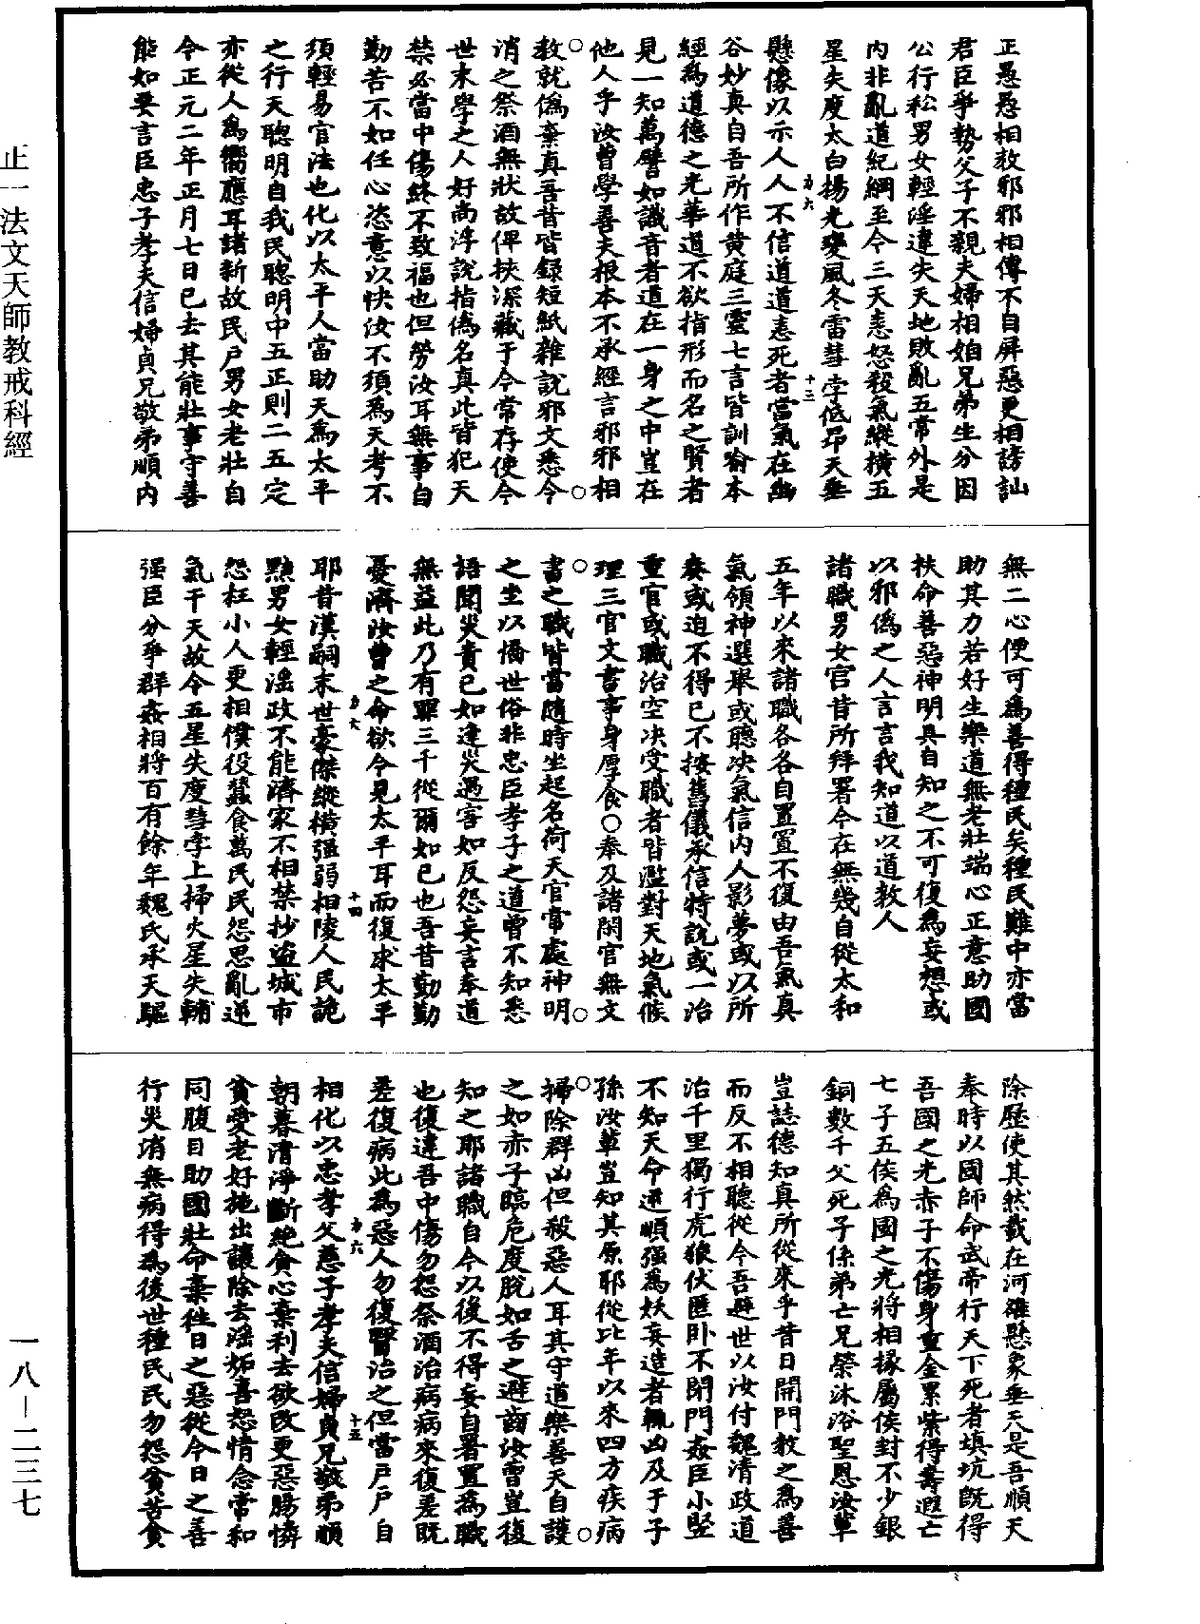 正一法文天師教戒科經
一八—二三七
正愚愚相教邪邪相傳不自屏惡更相謗訕
君臣爭勢父子不親夫婦相妬兄弟生分因
公行私男女輕淫違失天地敗亂五常外是
内非亂道紀綱至今三天恚怒殺氣縱橫五
星失度太白揚光變風冬雷彗孛低昂天垂
懸像以示人人不信道道恚死者當氣在幽
谷妙真自吾所作黄庭三靈七言皆訓喻本
經爲道德之光華道不欲指形而名之賢者
見一知萬譬如識音者道在一身之中豈在
他人乎汝曹學善夫根本不承經言邪邪相
教就僞棄真吾昔皆録短紙雜說邪文悉令
消之祭酒無狀故俾挾深藏于今常存使今
世末學之人好尚浮說指僞名真此皆犯天
禁必當中傷終不致福也但勞汝耳無事自
勤苦不如任心恣意以快汝不須爲天考不
須輕易官法也化以太平人當助天爲太平
之行天聰明自我民聰明中五正則二五定
亦從人爲嚮應耳諸新故民户男女老壯自
令正元二年正月七日已去其能壯事守善
能如要言臣忠子孝夫信婦貞兄敬弟順内
力六
十三
無二心便可爲善得種民矣種民難中亦當
助其力若好生樂道無老壯端心正意助國
扶命善惡神明具自知之不可復爲妄想或
以邪僞之人言言我知道以道教人
諸職男女官昔所拜署今在無幾自從太和
五年以來諸職各各自置置不復由吾氣真
氣領神選舉或聽决氣信内人影夢或以所
奏或迫不得已不按舊儀承信特說或一治
重官或職治空决受職者皆濫對天地氣候
理三官文書事身厚食○奉及諸閑官無文
書之職皆當隨時坐起名荷天官常處神明
之坐以憍世俗非忠臣孝子之道曾不知悉
語聞災責已如逢災遇害如反怨妄言奉道
無益此乃有罪三千從爾如已也吾昔勤勤
憂濟汝曹之命欲令見太平耳而復求太平
耶昔漢嗣末世豪傑縱橫强弱相陵人民詭
黠男女輕淫政不能濟家不相禁抄盜城市
怨枉小人更相僕役蠶食萬民民怨思亂逆
氣干天故令五星失度彗孛上掃火星失輔
强臣分爭群姦相將百有餘年魏氏承天驅
力六
十四
除歷使其然載在河雒懸象垂天是吾順天
奉時以國師命武帝行天下死者填坑既得
吾國之光赤子不傷身重金累紫得壽遐亡
七子五侯爲國之光將相掾屬侯封不少銀
銅數千父死子係弟亡兄榮沐浴聖恩汝輩
豈誌德知真所從來乎昔日開門教之爲善
而反不相聽從今吾避世以汝付魏清政道
治千里獨行虎狼伏匿卧不閉門姦臣小豎
不知天命逆順强爲妖妄造者輒凶及于子
孫汝輩豈知其原耶從比年以來四方疾病
掃除群凶但殺惡人耳其守道樂善天自護
之如赤子臨危度脫如舌之避齒汝曹豈復
知之耶諸職自今以後不得妄自署置爲職
也復違吾中傷勿怨祭酒治病病來復差既
差復病此爲惡人勿復醫治之但當户户自
相化以忠孝父慈子孝夫信婦貞兄敬弟順
朝暮清淨斷絶貪心棄利去欲改更惡腸憐
貧愛老好施出讓除去淫妬喜怒情念常和
同腹目助國壯命棄往日之惡從今日之善
行災消無病得爲後世種民民勿怨貧苦貪
力六
十五